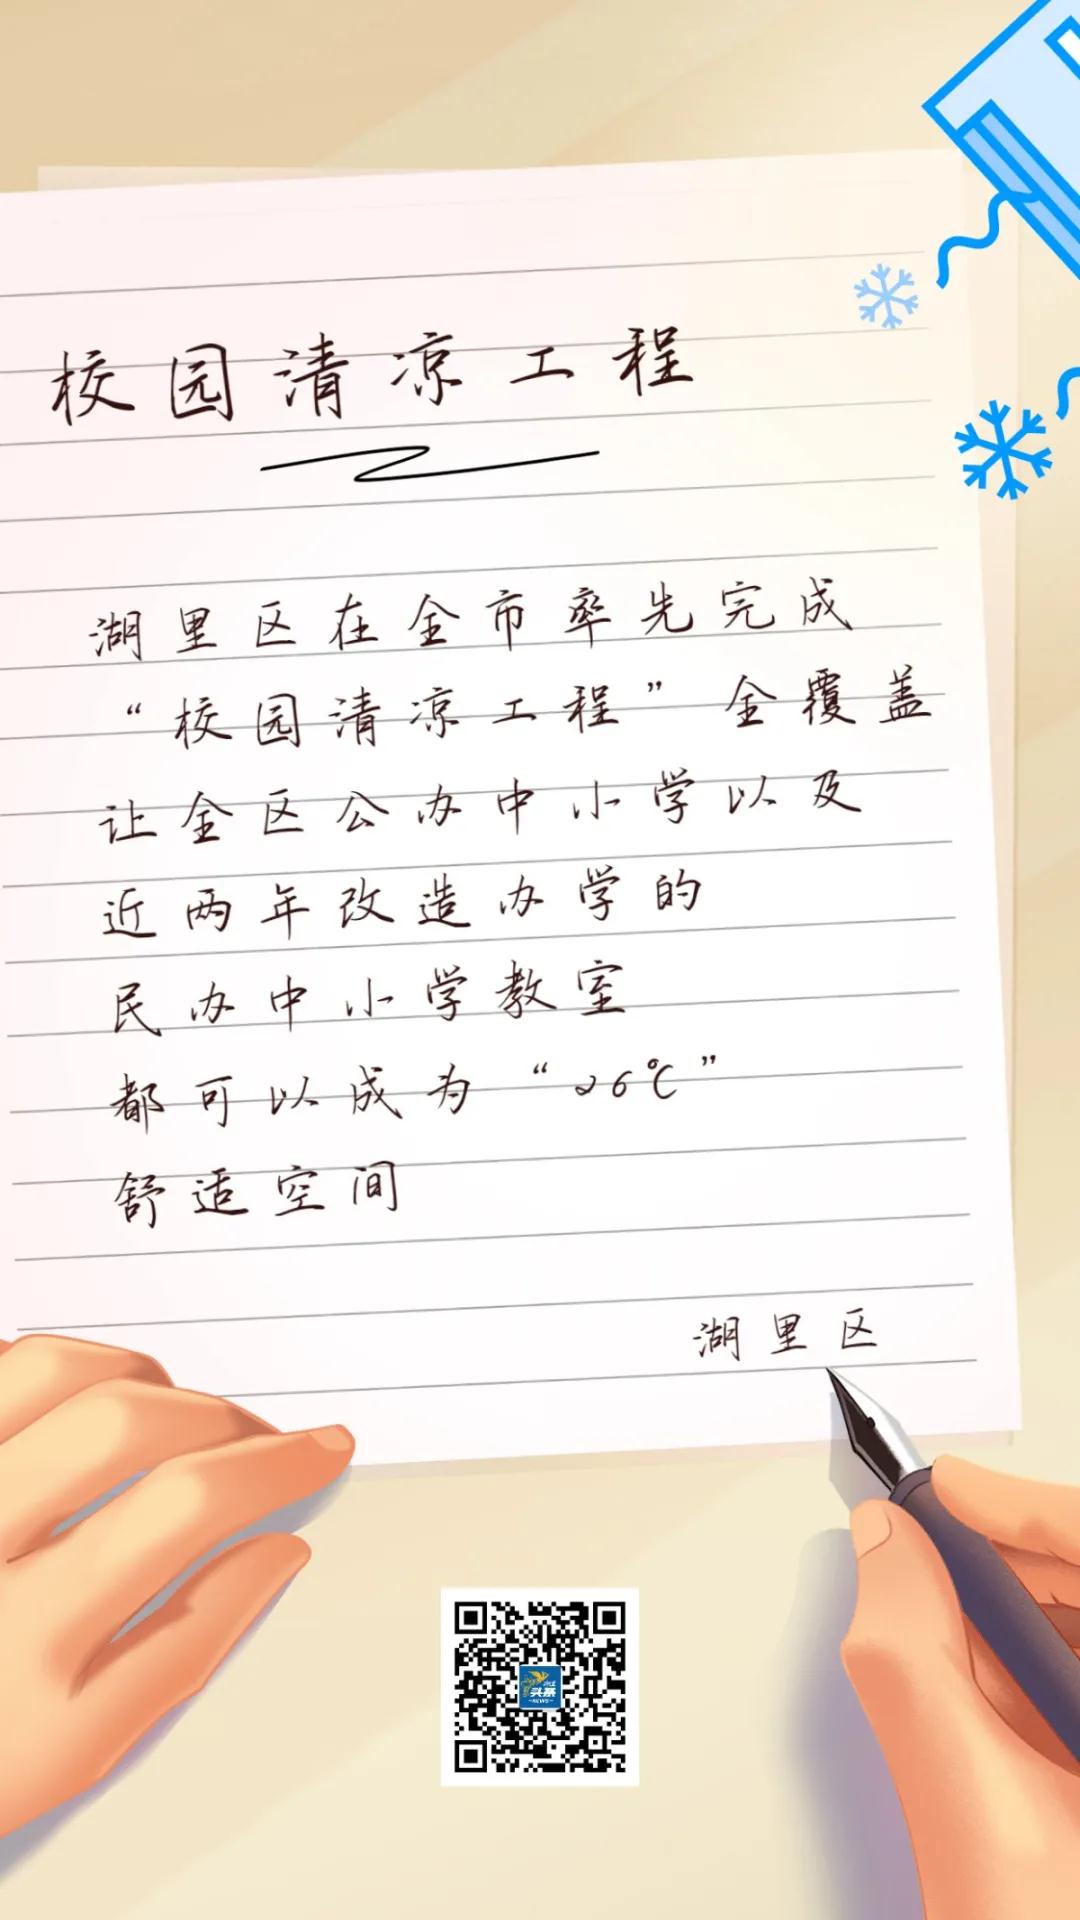 校园清凉工程
湖里区在全市率先完成
“校园清凉工程”全覆盖
让全区公办中小学以及
近两年改造办学的
民办中小学教室
都可以成为“26℃”
舒适空间
湖里区
头条
NEWS